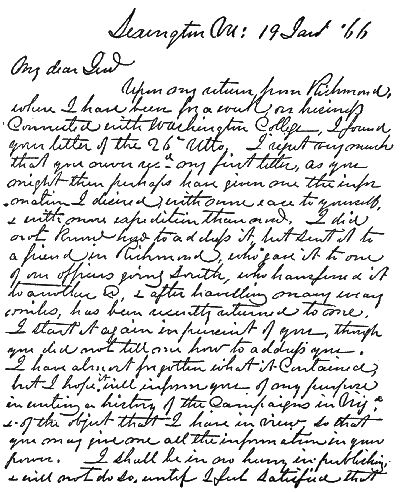 Lexington Va: 19 Jany '66
My dear Genl
Upon my return from Richmond,
where I have been for a week on business
Connected with Washington College, I found
your letter of the 26th Ulto. I regret very much
that you never recd my first letter, as you
might then perhaps have given me the infor
mation I desired, with more ease to yourself,
& with more expedition than now. I did
not know how to address it, but sent it to
a friend in Richmond, who gave it to one
of our officers going South, who transferred it
to another &c, & after travelling many weary
miles, has been recently returned to me.
I start it again in pursuit of you, though
you did not tell me how to address you.
I have almost forgotten what it Contained,
but I hope it will inform you of my purpose
in writing a history of the Campaigns in Virga
& of the object that I have in view, so that
you may give me all the information in your
power. I shall be in no hurry in publishing,
& will not do so, until I feel satisfied that